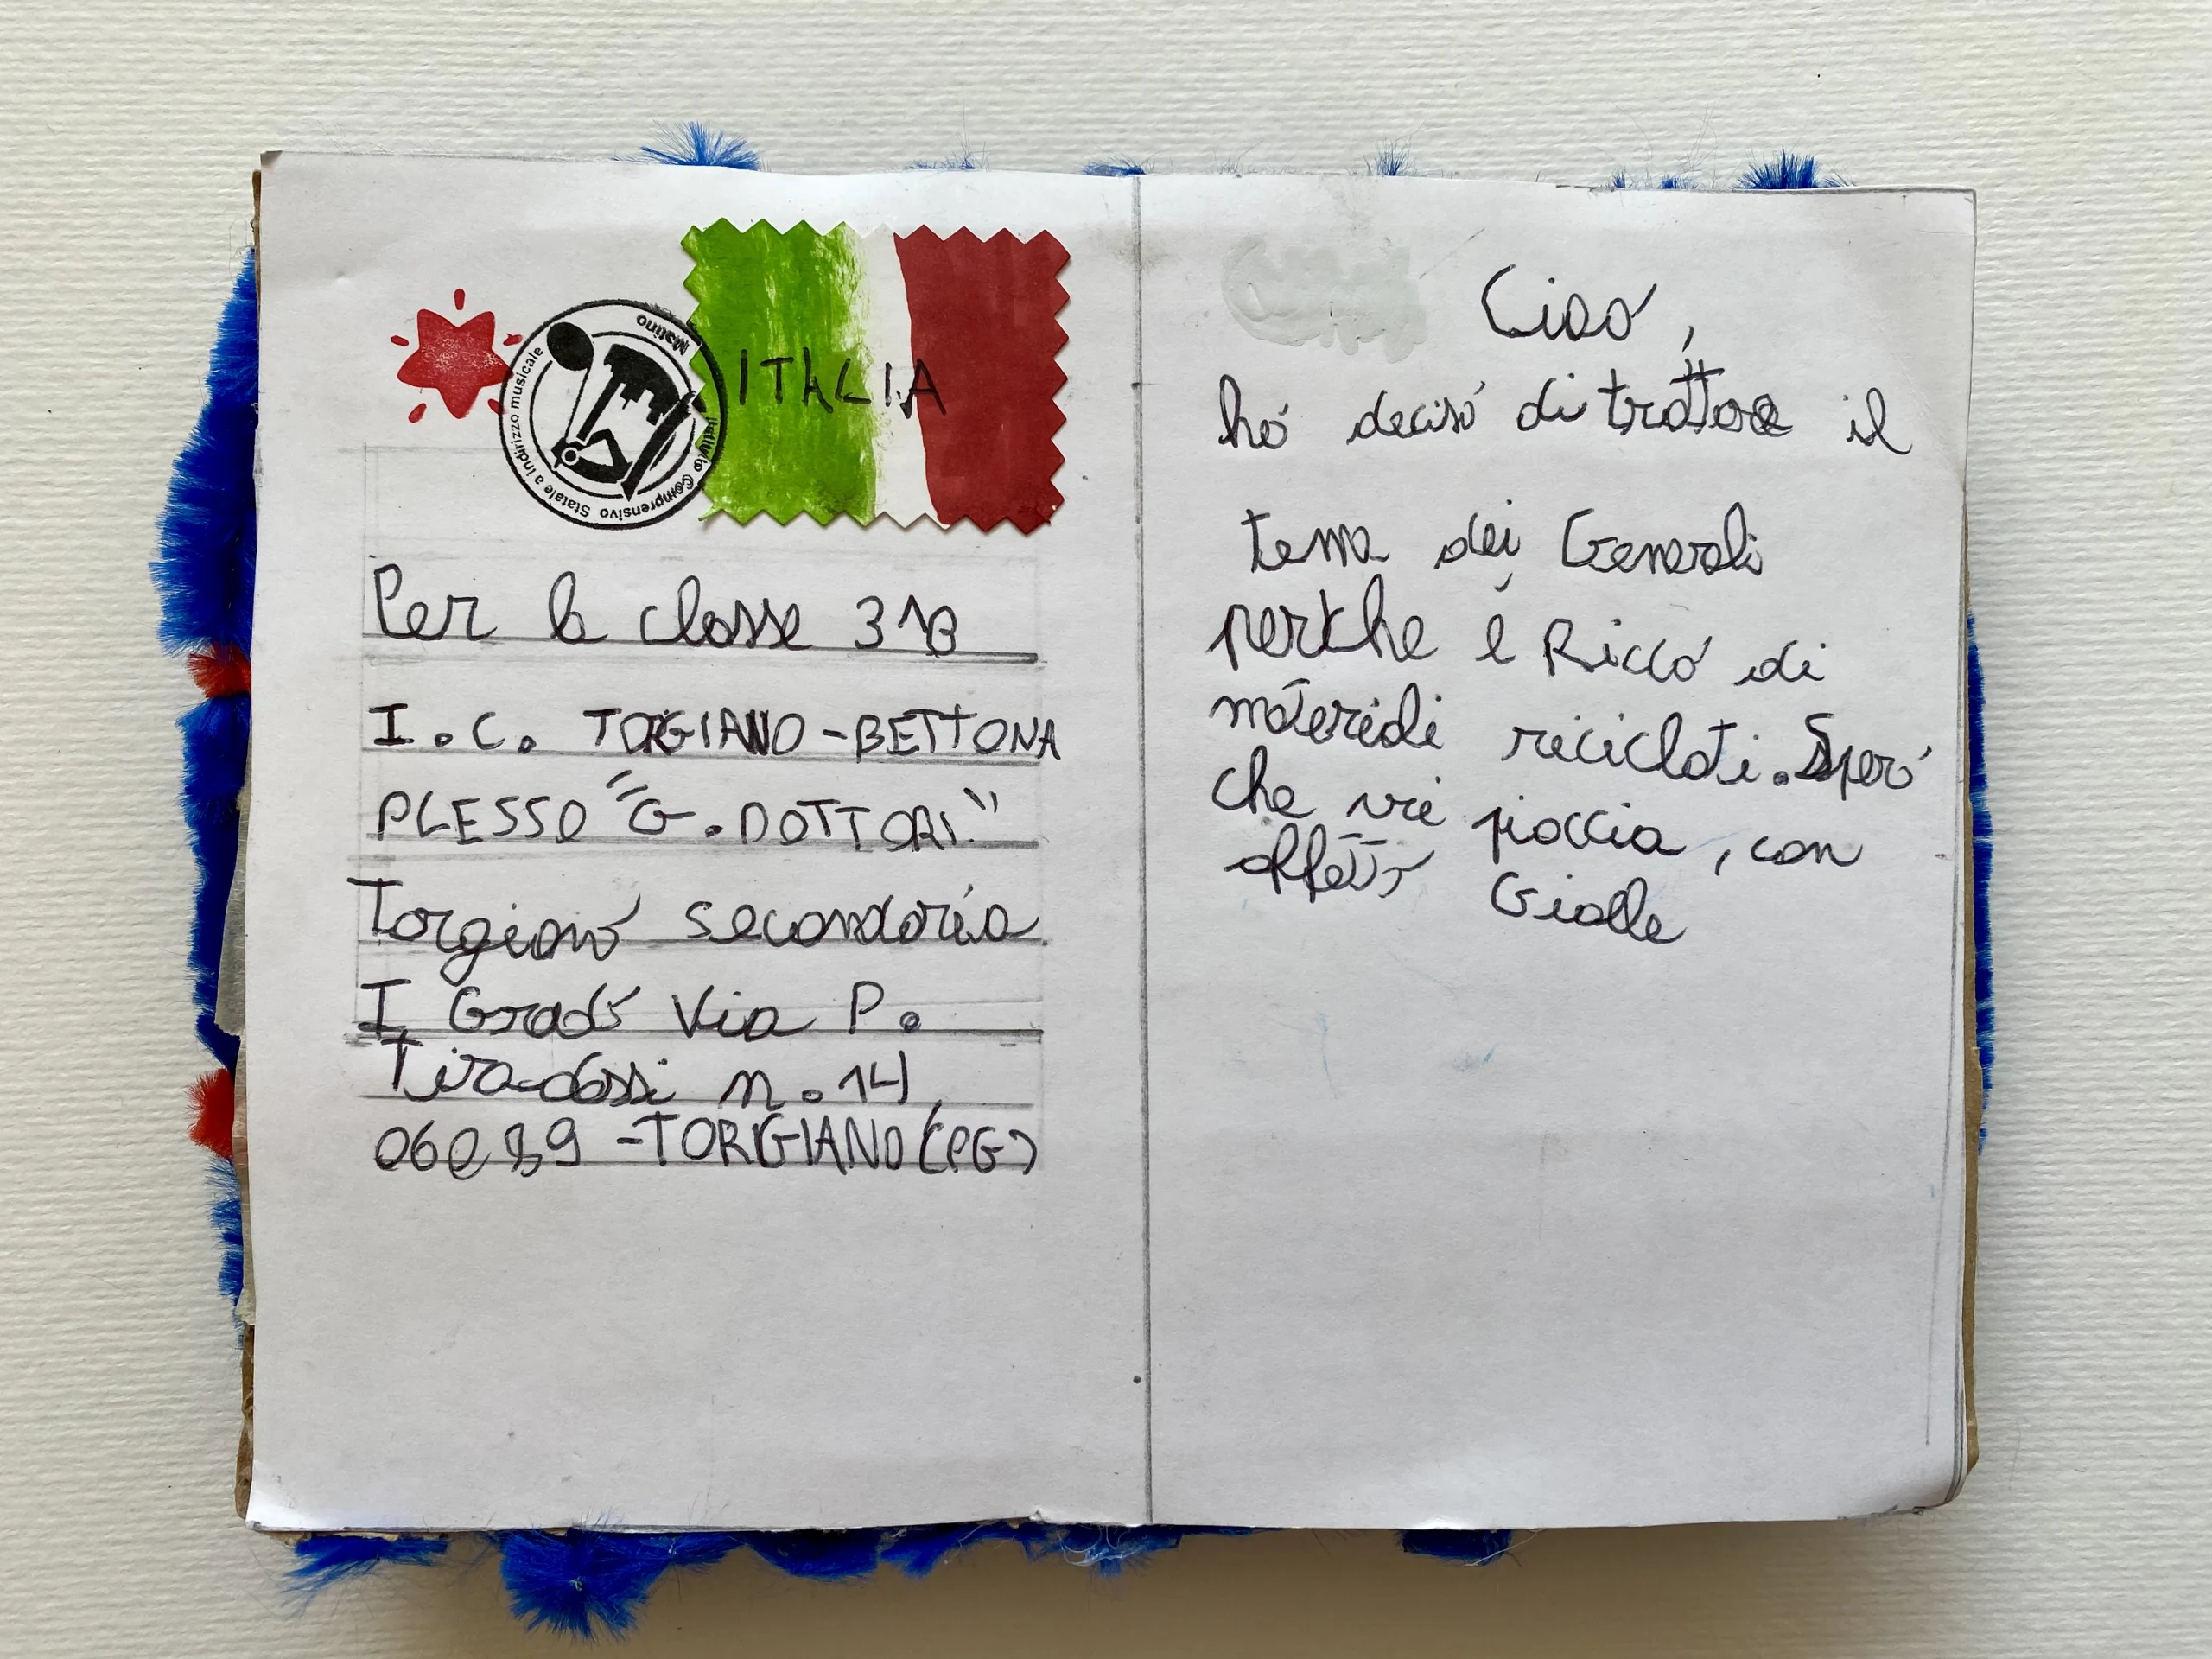 ITALIA
Istituto Comprensivo Statale a indirizzo musicale
Matino
Per la classe 3^B
I.C. TORGIANO-BETTONA
PLESSO "G. DOTTORI"
Torgiano secondaria
I Grado Via P.
Tiradossi n. 14,
06089 -TORGIANO (PG)
Ciao,
ho deciso di trattare il
tema dei Generali
perche è Ricco di
materiali riciclati. Spero
che vi piaccia, con
affetto